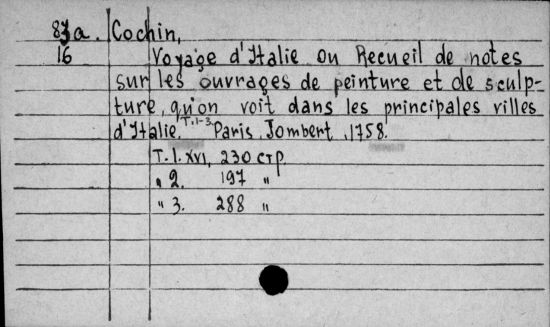 83a. Cochin,
16 Voyage d'Italie ou Recueil de notes
sur les ouvrages de peinture et de sculp-
ture, qu'on voit dans les principales villes
d'Italie. T. 1-3. Paris, Jombert, 1758.
T. 1. XVI, 230 стр.
" 2. 197 "
" 3. 288 "